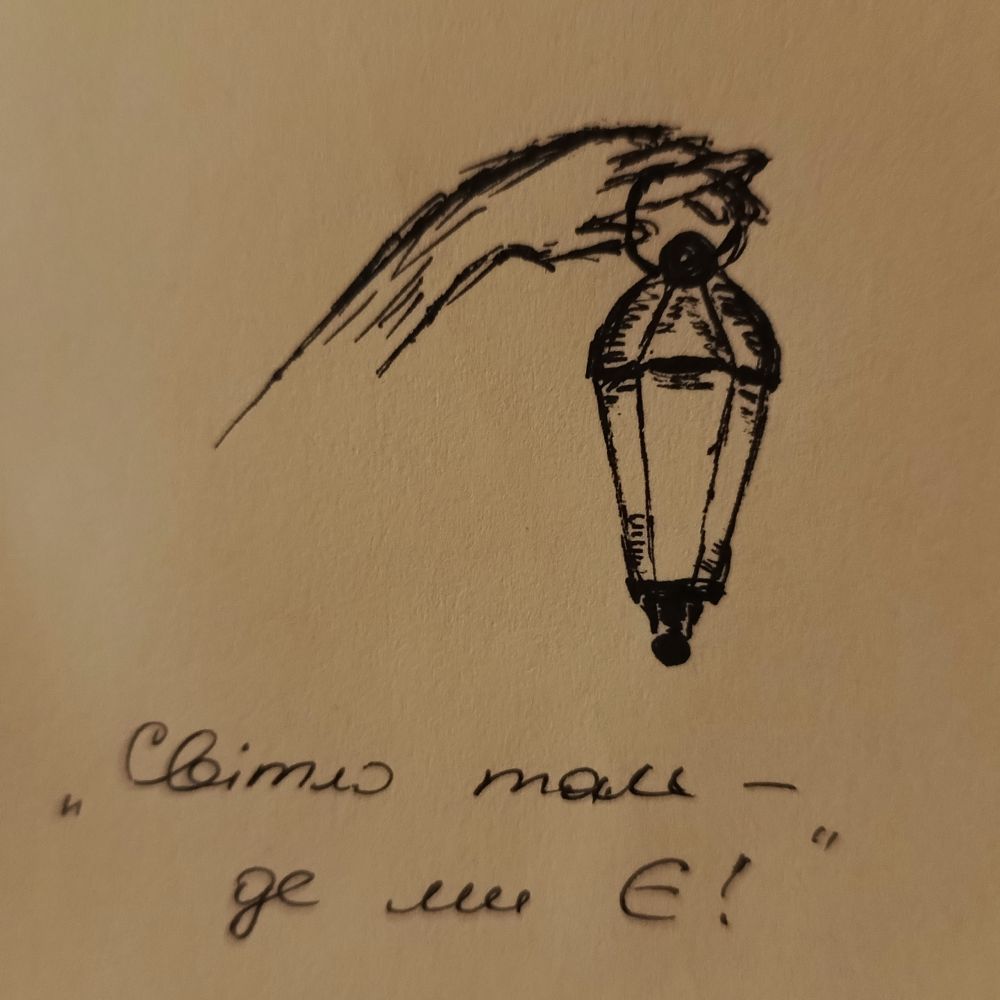 „Світло там —
де ми Є!“